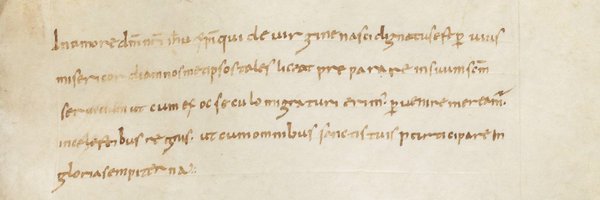 In amore dni nri ihu xpi qui de uirgine nasci dignatus est p cuius
misericordia nos metipsos tales liceat preparare in suum scm
seruitium ut cum ex oc seculo migraturi erim; peruenire mereamur
in celestibus regnis. ut cum omnibus scis tuis participare in
gloria sempiterna